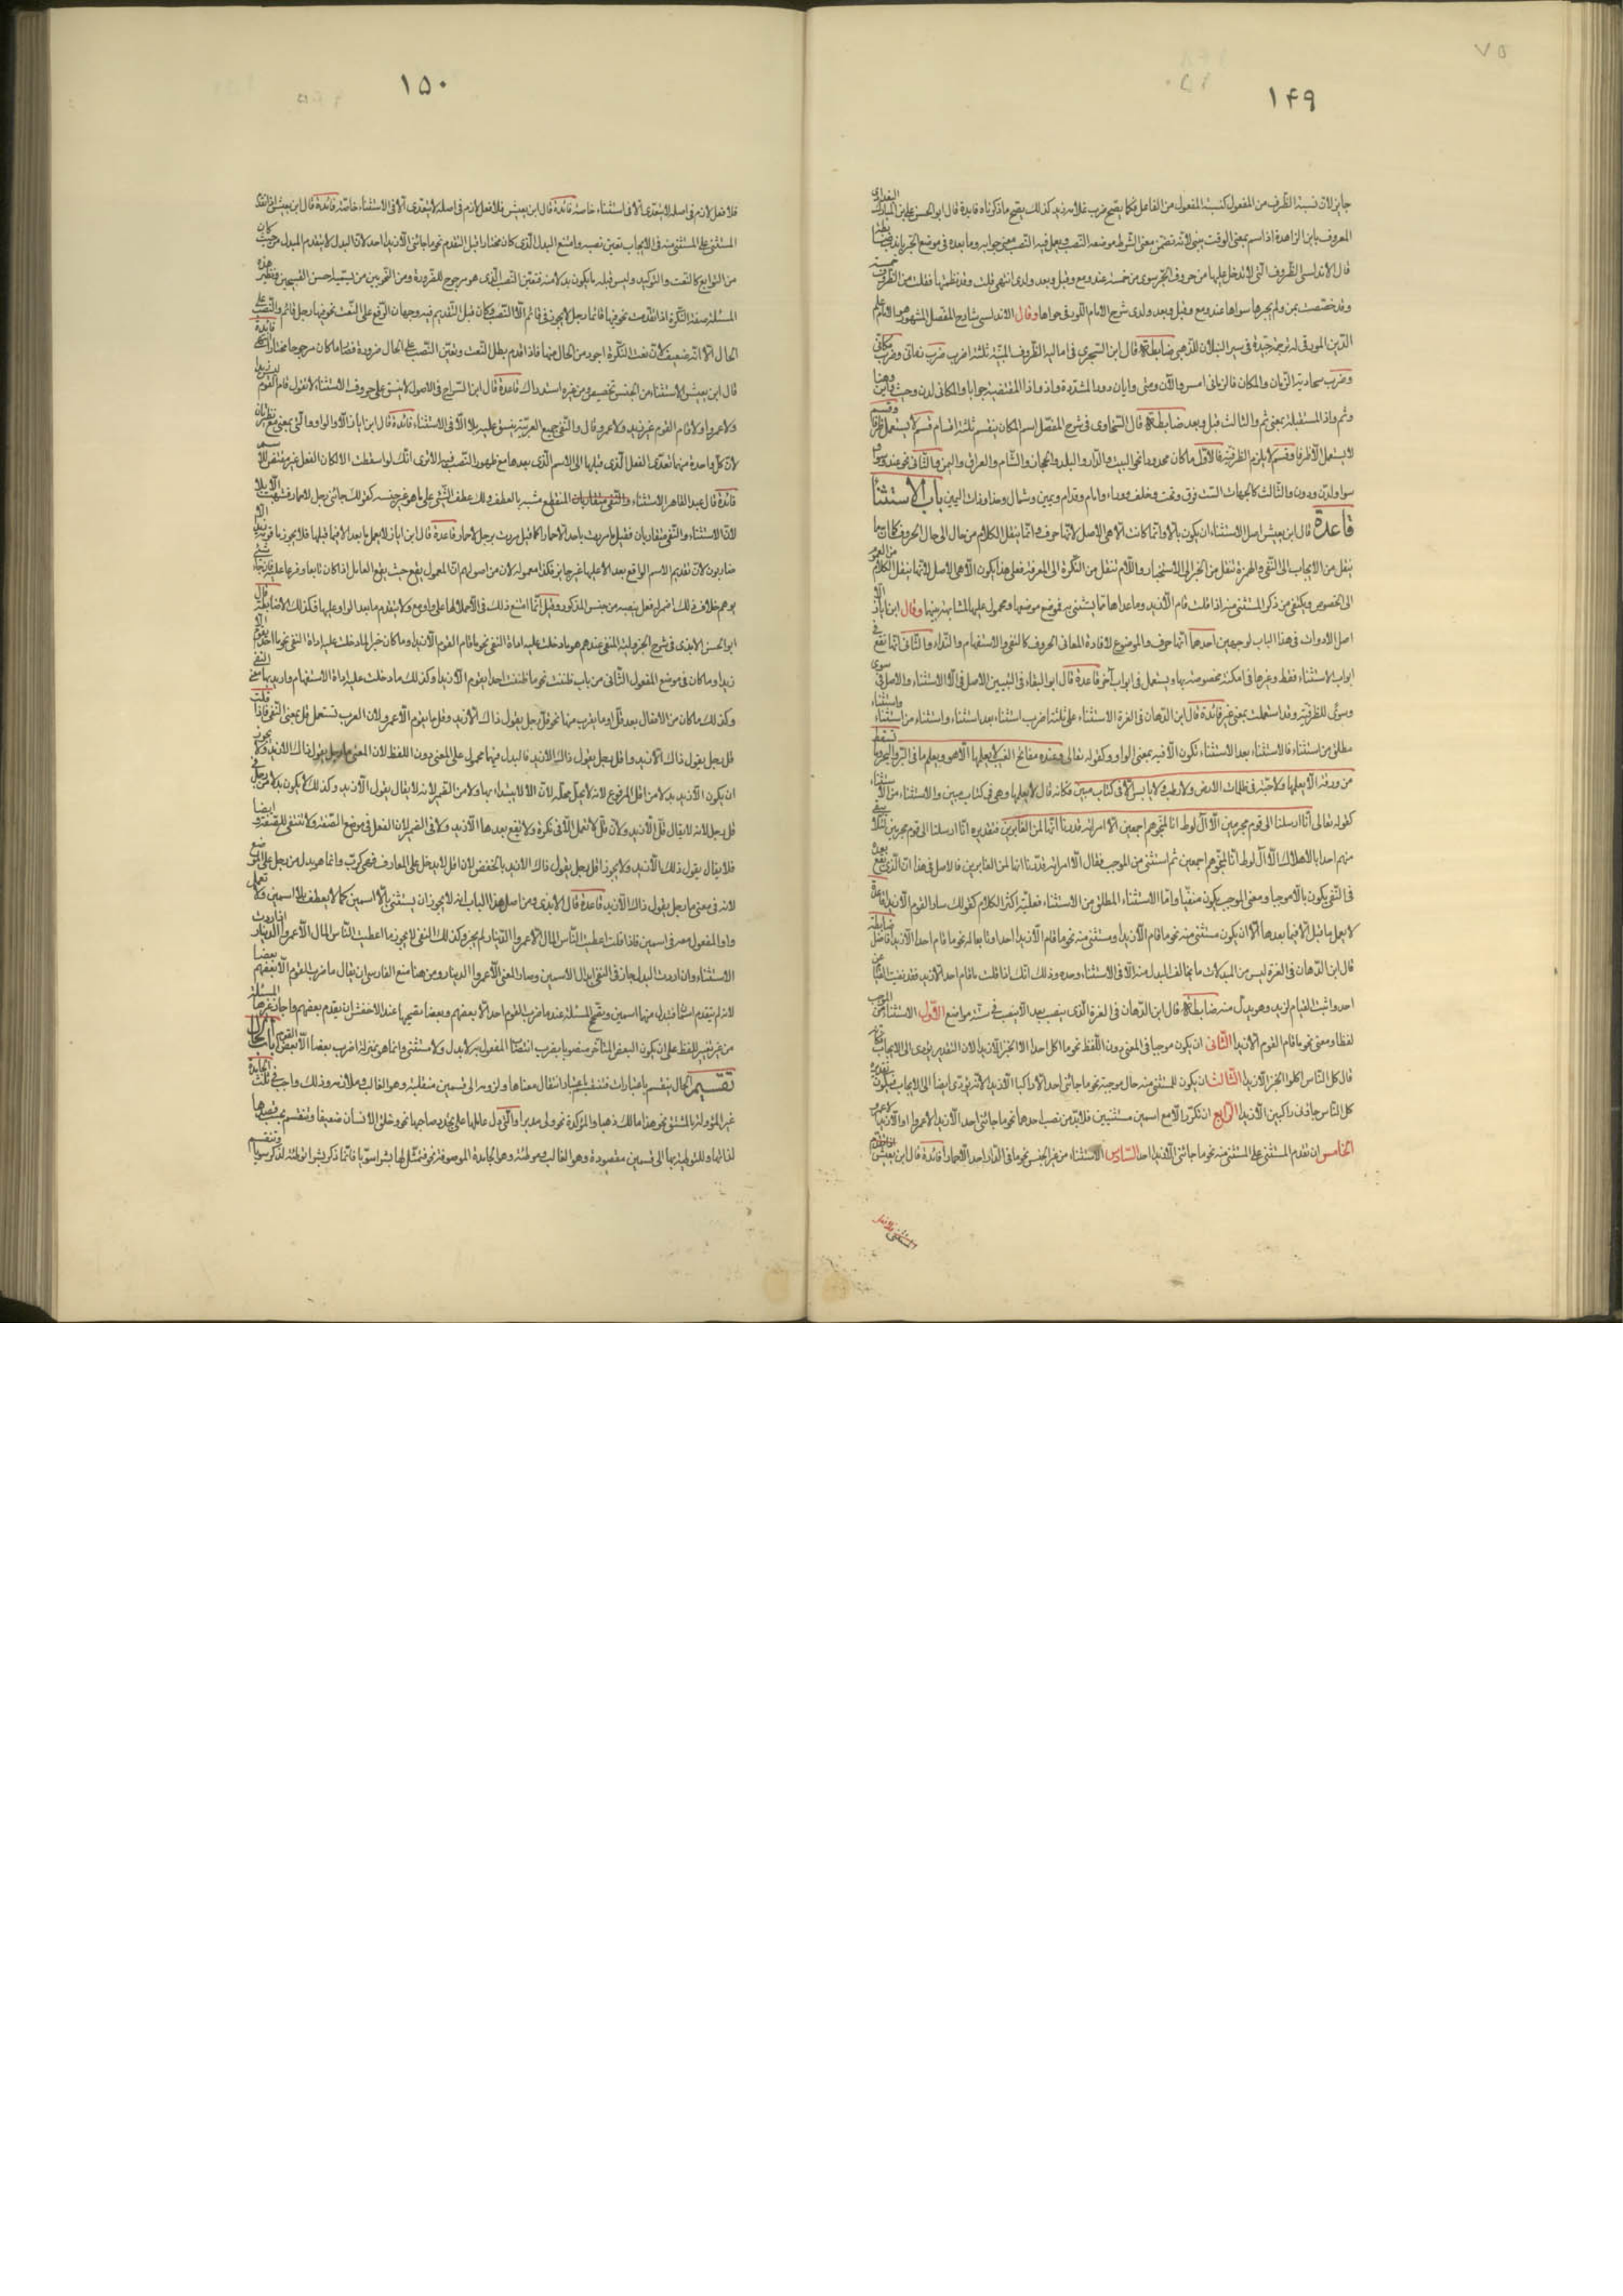 ١٤٩
جايز لان نسبة الظرف من المفعول كنسبة المفعول من الفاعل فكما يقبح ضرب غلامه زيد كذلك يقبح ما ذكرناه فايدة قال ابو الحسن علي بن المبارك البغدادي
المعروف بابن الزاهدة اذا اسم بمعنى الوقت يبنى لانه تضمن معنى الشرط موضعه النصب ويعمل فيه النصب معنى جوابه وما بعده في موضع الجر
قال الاندلسي الظروف التي لا تدخل عليها من حروف الجر سوى من خمسة عند ومع وقبل وبعد ولدى انتهى قلت وقد نظمتها فقلت من الظروف خمسة
وقد خصصت بمن ولم يجرها سواها عند ومع وقبل وبعد ولدى شرح الامام اللورقي حواها وقال الاندلسي شارح المفصل المشهور هو الامام علم
الدين المورقي له ترجمة جيدة في سير النبلاء للذهبي ضابطة قال ابن الشجري في اماليه الظروف المبنية ثلثة اضرب ضرب زماني وضرب مكاني
وضرب تجاذبه الزمان والمكان فالزماني امس والآن ومتى وايان وقط المشددة واذ واذا المقتضية جوابا والمكاني لدن وحيث واين وهنا
وثم واذا المستقبلة بمعنى ثم والثالث قبل وبعد ضابطة قال السخاوي في شرح المفصل اسم المكان ينقسم ثلثة اقسام قسم لا يستعمل ظرفا وقسم
لا يستعمل الا ظرفا وقسم لا يلزم الظرفية فالاول ما كان محدودا نحو البيت والدار والبلد والحجاز والشام والعراق واليمن والثاني نحو عند وسوى
سوا ولدن ودون والثالث كالجهات الست فوق وتحت وخلف ووراء وامام وقدام ويمين وشمال وحذاء وذات اليمين باب الاستثناء
قاعدة قال ابن يعيش اصل الاستثناء ان يكون بالا وانما كانت الا هي الاصل لانها حرف وانما ينقل الكلام من حال الى حال الحروف كما ان ما
ينقل من الايجاب الى النفي والهمزة تنقل من الخبر الى الاستخبار واللام تنقل من النكرة الى المعرفة فعلى هذا يكون الا هي الاصل لانها ينقل الكلام من العموم
الى الخصوص ويكتفى من ذكر المستثنى منه اذا قلت قام الا زيد وما عداها مما يستثنى به فموضع موضعها ومحمول عليها لمشابهة بينهما وقال ابن اياز الا
اصل الادوات في هذا الباب لوجهين احدهما انها حرف والموضوع لافادة المعاني الحروف كالنفي والاستفهام والنداء والثاني انها تقع في
ابواب الاستثناء فقط وغيرها في امكنة مخصوصة بها ويستعمل في ابواب آخر قاعدة قال ابو البقاء في التبيين الاصل في الا الاستثناء والاصل في سوى
وسوى للظرفية وقد استعملت بمعنى غير فائدة قال ابن الدهان في الغرة الاستثناء على ثلثة اضرب استثناء بعد استثناء واستثناء من استثناء واستثناء
مطلق من استثناء فالاستثناء بعد الاستثناء تكون الا فيه بمعنى الواو وكقوله تعالى وعنده مفاتح الغيب لا يعلمها الا هو ويعلم ما في البر والبحر وما تسقط
من ورقة الا يعلمها ولا حبة في ظلمات الارض ولا رطب ولا يابس الا في كتاب مبين فكانه قال لا يعلمها وهي في كتاب مبين والاستثناء من الاستثناء
كقوله تعالى انا ارسلنا الى قوم مجرمين الا آل لوط انا لمنجوهم اجمعين الا امراته قدرنا انها لمن الغابرين فتقديره انا ارسلنا الى قوم مجرمين
منهم احدا بالاهلاك الا آل لوط انا لمنجوهم اجمعين ثم استثنى من الموجب فقال الا امراته قدرنا انها لمن الغابرين فالاصل في هذا ان الذي يقع بعد
في النفي يكون بالا موجبا ومعنى الموجب يكون منفيا واما الاستثناء المطلق من الاستثناء فعليه اكثر الكلام كقولك سار القوم الا زيدا قاعدة
لا يعمل ما قبل الا فيما بعدها الا ان يكون مستثنى منه نحو ما قام الا زيدا ومستثنى منه نحو ما قام الا زيدا احد او تابعا له نحو ما قام احد الا زيد فاضل ضابطة
قال ابن الدهان في الغرة ليس من المبدلات ما يخالف البدل منه الا في الاستثناء وحده وذلك انك اذا قلت ما قام احد الا زيد فقد نفيت القيام عن
احد واثبت القيام لزيد وهو بدل منه ضابطة قال ابن الدهان في الغرة الذي ينصب بعد الا ينصب في ستة مواضع الاول الاستثناء من الموجب
لفظا ومعنى نحو ما قام القوم الا زيدا الثاني ان يكون موجبا في المعنى دون اللفظ نحو ما اكل احد الا الخبز الا زيدا لان التقدير يؤدى الى الايجاب
قال كل الناس اكلوا الخبز الا زيدا الثالث ان يكون للمستثنى منه حال موجبة نحو ما جائني احد الا راكبا الا زيدا لانه يؤدى ايضا الى الايجاب فيكون تقديره
كل الناس جاؤنى راكبين الا زيدا الرابع ان تكرر الا مع اسمين مستثنيين فلابد من نصب احدهما نحو ما جائني احد الا زيدا الا عمرو او الا زيد الا عمرا
الخامس ان تقدم المستثنى على المستثنى منه نحو ما جائني الا زيدا احد السادس الاستثناء من غير الجنس نحو ما في الدار احد الا حمارا فائدة قال ابن يعيش اذا تقدم
١٥٠
فلا فعل لازم في اصله لا يتعدى الا في استثناء خاصة فائدة قال ابن يعيش فلا فعل لازم في اصله لا يتعدى الا في الاستثناء خاصة فائدة قال ابن يعيش اذا تقدم
المستثنى على المستثنى منه في الايجاب تعين نصبه وامتنع البدل الذي كان مختارا قبل التقدم نحو ما جائني الا زيدا احد لان البدل لا يتقدم المبدل من حيث كان
من التوابع كالنعت والتوكيد وليس قبله ما يكون بدلا منه فتعين النصب الذي هو مرجوح للضرورة ومن النحويين من يسميه احسن القبيحين ونظير هذه
المسئلة صفة النكرة اذا تقدمت نحو فيها قائما رجل لا يجوز في قائم الا النصب وكان قبل التقديم فيه وجهان الرفع على النعت نحو فيها رجل قائم والنصب على
الحال الا انه ضعيف لان نعت النكرة اجود من الحال منها فاذا اقدم بطل النعت وتعين النصب على الحال ضرورة فصار ما كان مرجوحا مختارا فائدة
قال ابن يعيش الاستثناء من الجنس تخصيص ومن غيره استدراك قاعدة قال ابن السراج في الاصول لا ينسق على حروف الاستثناء لا تقول قام القوم ليس زيدا
ولا عمروا ولا قام القوم غير زيد ولا عمرو قال والنفي جميع العربية ينسق عليه بلا الا في الاستثناء فائدة قال ابن اياز الا والواو التي بمعنى مع نظيرتان
لان كل واحدة منهما تعدى الفعل الذي قبلها الى الاسم الذي بعدها مع ظهور النصب فيه الا ترى انك لو اسقطت الا لكان الفعل غير مقتض للاسم
فائدة قال عبد القاهر الاستثناء المنقطع مشبه بالعطف ولك عطف الشئ على ما هو غير جنسه كقولك جائني رجل لا حمار فشبهت الا بلا
لان الاستثناء والنفي متقاربان فقيل ما مررت باحد الا حمارا كما قيل مررت برجل لا حمار قاعدة قال ابن اياز لا يعمل ما بعد الا فيما قبلها فلا يجوز ما قومه زيد الا
ضاربون لان تقديم الاسم الواقع بعد الا عليها غير جايز فكذا معموله لان من اصولهم ان المعمول يقع حيث يقع العامل اذا كان تابعا وفرعا عليه
يوهم خلاف ذلك اضمر له فعل ينصبه من جنس المذكور وقيل انما امتنع ذلك في الا حملا لها على واو مع ولا يتقدم ما بعد الواو عليها فكذلك الا ضابطة قال
ابو الحسن الابذي في شرح الجزولية المنفي عندهم هو ما دخلت عليه اداة النفي نحو ما قام القوم الا زيد او ما كان خبرا لما دخلت عليه اداة النفي نحو ما احد يقوم الا
زيدا وما كان في موضع المفعول الثاني من باب ظننت نحو ما ظننت احدا يقوم الا زيدا وكذلك ما دخلت عليه اداة الاستفهام واريد بها معنى النفي
وكذلك ما كان من الافعال بعد قل او ما يقرب منها نحو قل رجل يقول ذاك الا زيد وقل ما يقوم الا عمرو لان العرب تستعمل قل بمعنى النفي فاذا قلت
قل رجل يقول ذاك الا زيد واقل رجل يقول ذاك الا زيد فالبدل فيهما محمول على المعنى دون اللفظ لان المعنى ما رجل يقول ذاك الا زيد ولا يجوز
ان يكون الا زيد بدلا من اقل المرفوع لانه لا يحل محله لان الا لا يبتدا بها ولا من الضمير لانه لا يقال يقول الا زيد وكذلك لا يكون بدلا من رجل في
قل رجل لانه لا يقال قل الا زيد ولان قل لا تعمل الا في نكرة ولا يقع بعدها الا زيد ولا في الضمير لان الفعل في موضع الصفة ولا تنتفي الصفة ايضا
فلا يقال يقول ذلك الا زيد ولا يجوز اقل رجل يقول ذاك الا زيد بالخفض لان اقل لا يدخل على المعارف فهي كرب وانما هو بدل من رجل على الموضع
لانه في معنى ما رجل يقول ذاك الا زيد قاعدة قال الابذي ومن اصل هذا الباب انه لا يجوز ان يستثنى بالا اسمين كما لا يعطف بلا اسمين ولا تعمل
واو المفعول معه في اسمين فاذا قلت اعطيت الناس المال الا عمروا الدينار لم يجز وكذلك النفي لا يجوز ما اعطيت الناس المال الا عمروا الدينار اذا اردت
الاستثناء وان اردت البدل جاز في النفي ابدال الاسمين وصار المعنى الا عمروا الدينار ومن هنا منع الفارسي ان يقال ما ضرب القوم الا بعضهم بعضا
لانه لم يتقدم اسمان فتبدل منهما اسمين وتصحيح المسئلة عنده ما ضرب القوم احدا الا بعضهم بعضا وتصحيحها عند الاخفش ان يقدم بعضهم واجاز غيرهما المسئلة
من غير تغيير اللفظ على ان يكون البعض المتأخر منصوبا بضرب انتصاب المفعول به لا بدلا ولا مستثنى وانما هي بمنزلة اضرب بعضا الا بعض القوم باب الحال
تقسيم الحال ينقسم باعتبارات فتنقسم باعتبار انتقال معناها ولزومه الى قسمين منتقلة وهو الغالب وملازمة وذلك واجب في ثلث الجامدة
غير المؤولة بالمشتق نحو هذا مالك ذهبا والمؤكدة نحو ولى مدبرا والتي دل عاملها على تجدد صاحبها نحو وخلق الانسان ضعيفا وتنقسم بحسب قصدها
لذاتها وللتوطية بها الى قسمين مقصودة وهو الغالب وموطئة وهو الجامدة الموصوفة نحو فتمثل لها بشرا سويا فانما ذكر بشرا توطئة لذكر سويا وتنقسم